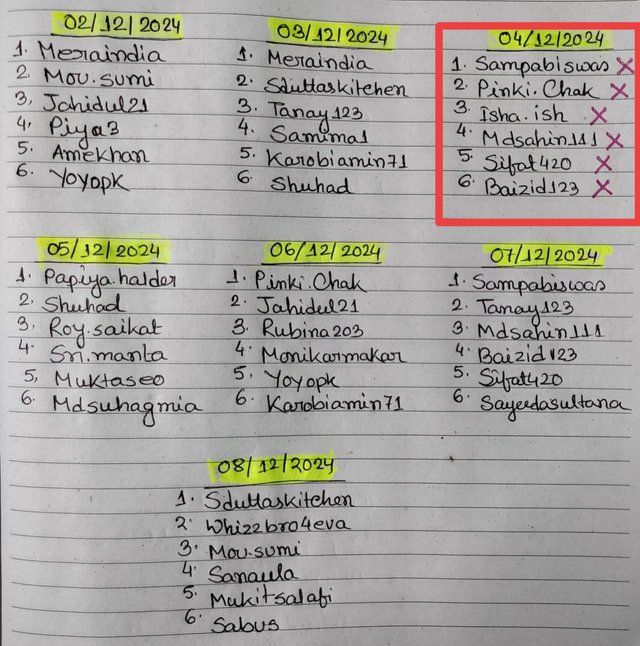 02/12/2024
1. Meraindia
2. Mou.sumi
3, Jahidul21
4, Piya3
5. Amekhan
6. Yoyopk
03/12/2024
1. Meraindia
2. Sduttaskitchen
3. Tanay123
4. Samima1
5. Karobiamin71
6. Shuhad
04/12/2024
1. Sampabiswas X
2. Pinki.Chak X
3. Isha.ish X
4. Mdsahin111 X
5. Sifat420 X
6. Baizid123 X
05/12/2024
1. Papiya.halder
2. Shuhad
3. Roy.saikat
4. Sri.manta
5, Muktaseo
6. Mdsuhagmia
06/12/2024
1. Pinki.Chak
2. Jahidul21
3. Rubina203
4. Monikarmakar
5. Yoyopk
6. Karobiamin71
07/12/2024
1. Sampabiswas
2. Tanay123
3. Mdsahin111
4. Baizid123
5. Sifat420
6. Sayeedasultana
08/12/2024
1. Sduttaskitchen
2. Whizzbro4eva
3. Mou.sumi
4. Sanaula
5. Mukitsalafi
6. Sabus